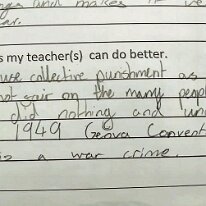 and makes it ve
ar.
s my teacher(s) can do better.
use collective punishment as
not fair on the many peopl
did nothing and un
1949 Geneva Convent
is a war crime.